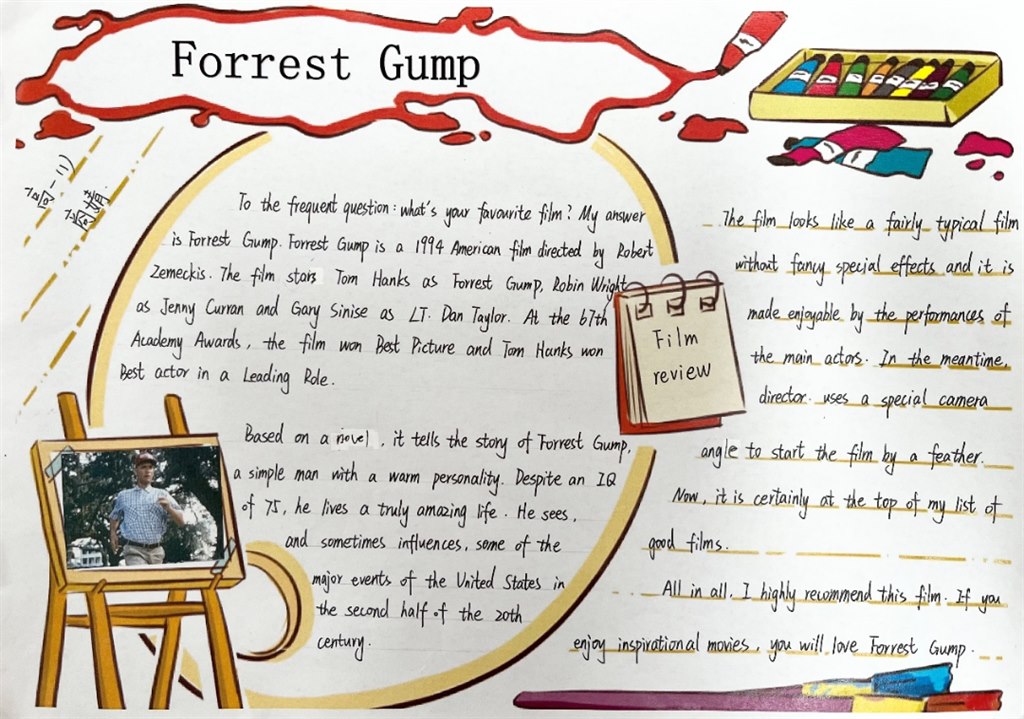 Forrest Gump
To the frequent question: what's your favourite film? My answer
is Forrest Gump. Forrest Gump is a 1994 American film directed by Robert
Zemeckis. The film stars Tom Hanks as Forrest Gump, Robin Wright
as Jenny Curran and Gary Sinise as LT. Dan Taylor. At the 67th
Academy Awards, the film won Best Picture and Tom Hanks won
Best actor in a Leading Role.
Based on a novel, it tells the story of Forrest Gump,
a simple man with a warm personality. Despite an IQ
of 75, he lives a truly amazing life. He sees,
and sometimes influences, some of the
major events of the United States in
the second half of the 20th
century.
Film
review
The film looks like a fairly typical film
without fancy special effects and it is
made enjoyable by the performances of
the main actors. In the meantime,
director uses a special camera
angle to start the film by a feather.
Now, it is certainly at the top of my list of
good films.
All in all, I highly recommend this film. If you
enjoy inspirational movies, you will love Forrest Gump.